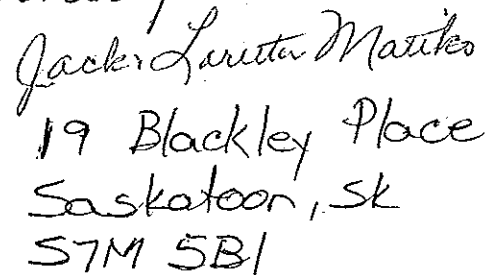 Jack & Loretta Matiko
19 Blackley Place
Saskatoon, SK
S7M 5B1